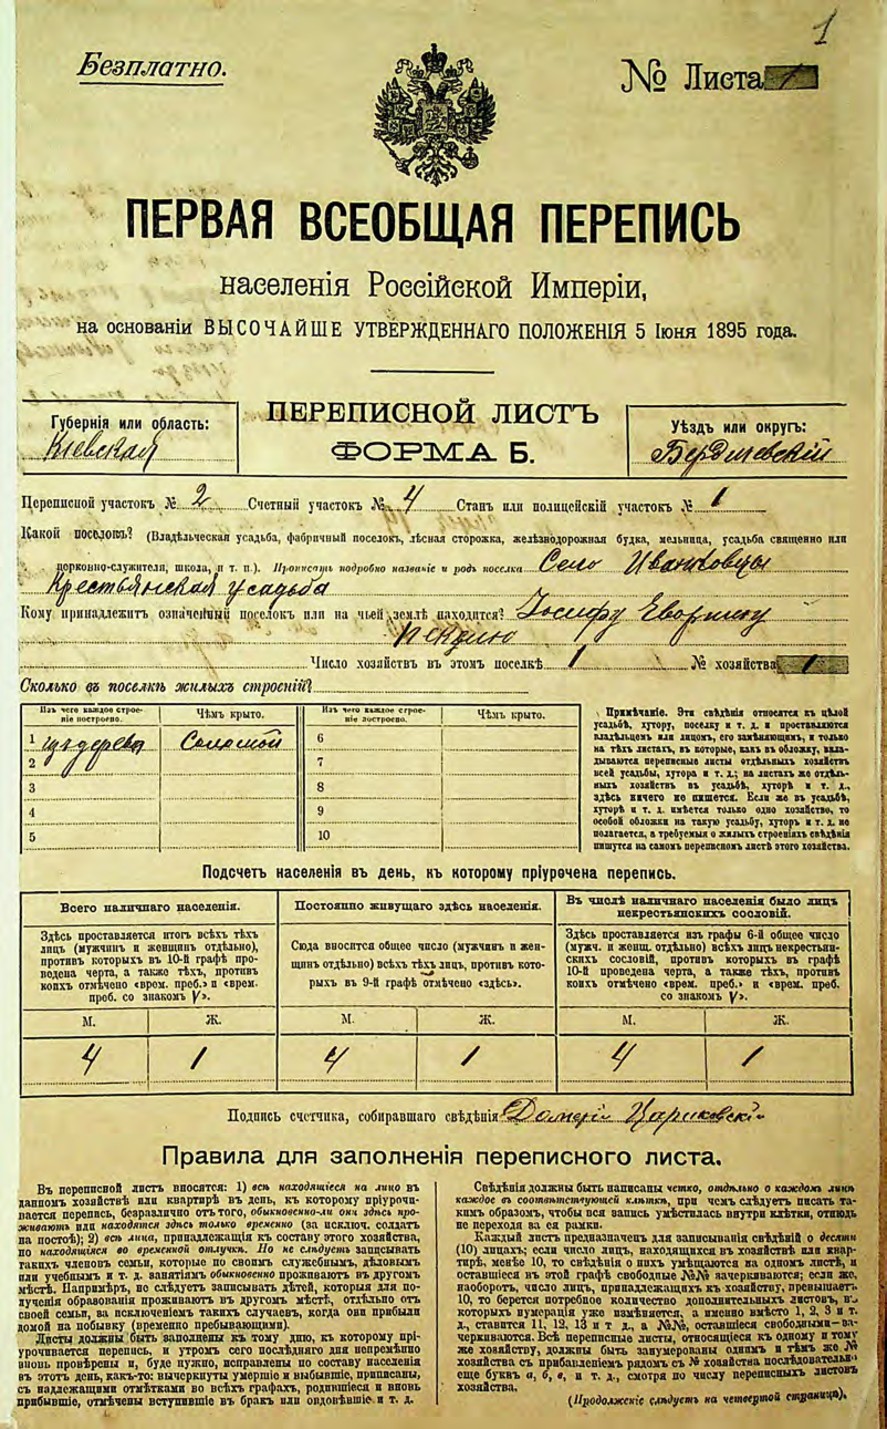 1
Безплатно.
№ Листа 1
ПЕРВАЯ ВСЕОБЩАЯ ПЕРЕПИСЬ
населенія Россійской Имперіи,
на основаніи ВЫСОЧАЙШЕ УТВЕРЖДЕННАГО ПОЛОЖЕНІЯ 5 Іюня 1895 года.
Губернія или область:
Кіевская
ПЕРЕПИСНОЙ ЛИСТЪ
ФОРМА Б.
Уѣздъ или округъ:
Бердичевскій
Переписной участокъ № 2 Счетный участокъ № 4 Станъ или полицейскій участокъ № 1
Какой поселокъ? (Владѣльческая усадьба, фабричный поселокъ, лѣсная сторожка, желѣзнодорожная будка, мельница, усадьба священно или
церковно-служителя, школа, и т. п.). Прописать подробно названіе и родъ поселка Село Иванковцы
Крестьянская усадьба
Кому принадлежитъ означенный поселокъ или на чьей землѣ находится? Іосифу
Число хозяйствъ въ этомъ поселкѣ 1 № хозяйства 1
Сколько въ поселкѣ жилыхъ строеній?
Изъ чего каждое строе-
ніе построено.
Чѣмъ крыто.
Изъ чего каждое строе-
ніе построено.
Чѣмъ крыто.
1 изъ дерева Соломой 6
2 7
3 8
4 9
5 10
Примѣчаніе. Эти свѣдѣнія относятся къ цѣлой
усадьбѣ, хутору, поселку и т. д. и проставляются
владѣльцемъ или лицомъ, его замѣняющимъ, и только
на тѣхъ листахъ, въ которые, какъ въ обложку, вкла-
дываются переписные листы отдѣльныхъ хозяйствъ
всей усадьбы, хутора и т. д.; на листахъ же отдѣль-
ныхъ хозяйствъ въ усадьбѣ, хуторѣ и т. д.,
здѣсь ничего не пишется. Если же въ усадьбѣ,
хуторѣ и т. д. имѣется только одно хозяйство, то
особой обложки на такую усадьбу, хуторъ и т. д. не
полагается, а требуемыя о жилыхъ строеніяхъ свѣдѣнія
пишутся на самомъ переписномъ листѣ этого хозяйства.
Подсчетъ населенія въ день, къ которому пріурочена перепись.
Всего наличнаго населенія.
Здѣсь проставляется итогъ всѣхъ тѣхъ
лицъ (мужчинъ и женщинъ отдѣльно),
противъ которыхъ въ 10-й графѣ про-
ведена черта, а также тѣхъ, противъ
коихъ отмѣчено «врем. преб.» и «врем.
преб. со знакомъ V».
Постоянно живущаго здѣсь населенія.
Сюда вносится общее число (мужчинъ и жен-
щинъ отдѣльно) всѣхъ тѣхъ лицъ, противъ кото-
рыхъ въ 9-й графѣ отмѣчено «здѣсь».
Въ числѣ наличнаго населенія было лицъ
некрестьянскихъ сословій.
Здѣсь проставляется изъ графы 6-й общее число
(мужч. и женщ. отдѣльно) всѣхъ лицъ некрестьян-
скихъ сословій, противъ которыхъ въ графѣ
10-й проведена черта, а также тѣхъ, противъ
коихъ отмѣчено «врем. преб.» и «врем. преб.
со знакомъ V».
М. Ж. М. Ж. М. Ж.
4 1 4 1 4 1
Подпись счетчика, собиравшаго свѣдѣнія
Правила для заполненія переписного листа.
Въ переписной листъ вносятся: 1) всѣ находящіеся на лицо въ
данномъ хозяйствѣ или квартирѣ въ день, къ которому пріурочи-
вается перепись, безразлично отъ того, обыкновенно-ли они здѣсь про-
живаютъ или находятся здѣсь только временно (за исключ. солдатъ
на постоѣ); 2) всѣ лица, принадлежащія къ составу этого хозяйства,
но находящіяся во временной отлучкѣ. Но не слѣдуетъ записывать
такихъ членовъ семьи, которые по своимъ служебнымъ, дѣловымъ
или учебнымъ и т. д. занятіямъ обыкновенно проживаютъ въ другомъ
мѣстѣ. Напримѣръ, не слѣдуетъ записывать дѣтей, которыя для по-
лученія образованія проживаютъ въ другомъ мѣстѣ, отдѣльно отъ
своей семьи, за исключеніемъ такихъ случаевъ, когда они прибыли
домой на побывку (временно пребывающими).
Листы должны быть заполнены къ тому дню, къ которому прі-
урочивается перепись, и утромъ сего послѣдняго дня непремѣнно
вновь провѣрены и, буде нужно, исправлены по составу населенія
въ этотъ день, какъ-то: вычеркнуты умершіе и выбывшіе, приписаны,
съ надлежащими отмѣтками во всѣхъ графахъ, родившіеся и вновь
прибывшіе, отмѣчены вступившіе въ бракъ или овдовѣвшіе и т. д.
Свѣдѣнія должны быть написаны четко, отдѣльно о каждомъ лицѣ
каждое въ соотвѣтствующей клѣткѣ, при чемъ слѣдуетъ писать та-
кимъ образомъ, чтобы вся запись умѣстилась внутри клѣтки, отнюдь
не переходя за ея рамки.
Каждый листъ предназначенъ для записыванія свѣдѣній о десяти
(10) лицахъ; если число лицъ, находящихся въ хозяйствѣ или квар-
тирѣ, менѣе 10, то свѣдѣнія о нихъ умѣщаются на одномъ листѣ, и
оставшіеся въ этой графѣ свободные №№ зачеркиваются; если же,
наоборотъ, число лицъ, принадлежащихъ къ хозяйству, превышаетъ
10, то берется потребное количество дополнительныхъ листовъ, въ
которыхъ нумерація уже измѣняется, а именно вмѣсто 1, 2, 3 и т.
д., ставится 11, 12, 13 и т. д, а №№, оставшіеся свободными—за-
черкиваются. Всѣ переписные листы, относящіеся къ одному и тому
же хозяйству, должны быть занумерованы однимъ и тѣмъ же №
хозяйства съ прибавленіемъ рядомъ съ № хозяйства послѣдовательно
еще буквъ а, б, в, и т. д., смотря по числу переписныхъ листовъ
хозяйства.
(Продолженіе слѣдуетъ на четвертой страницѣ).